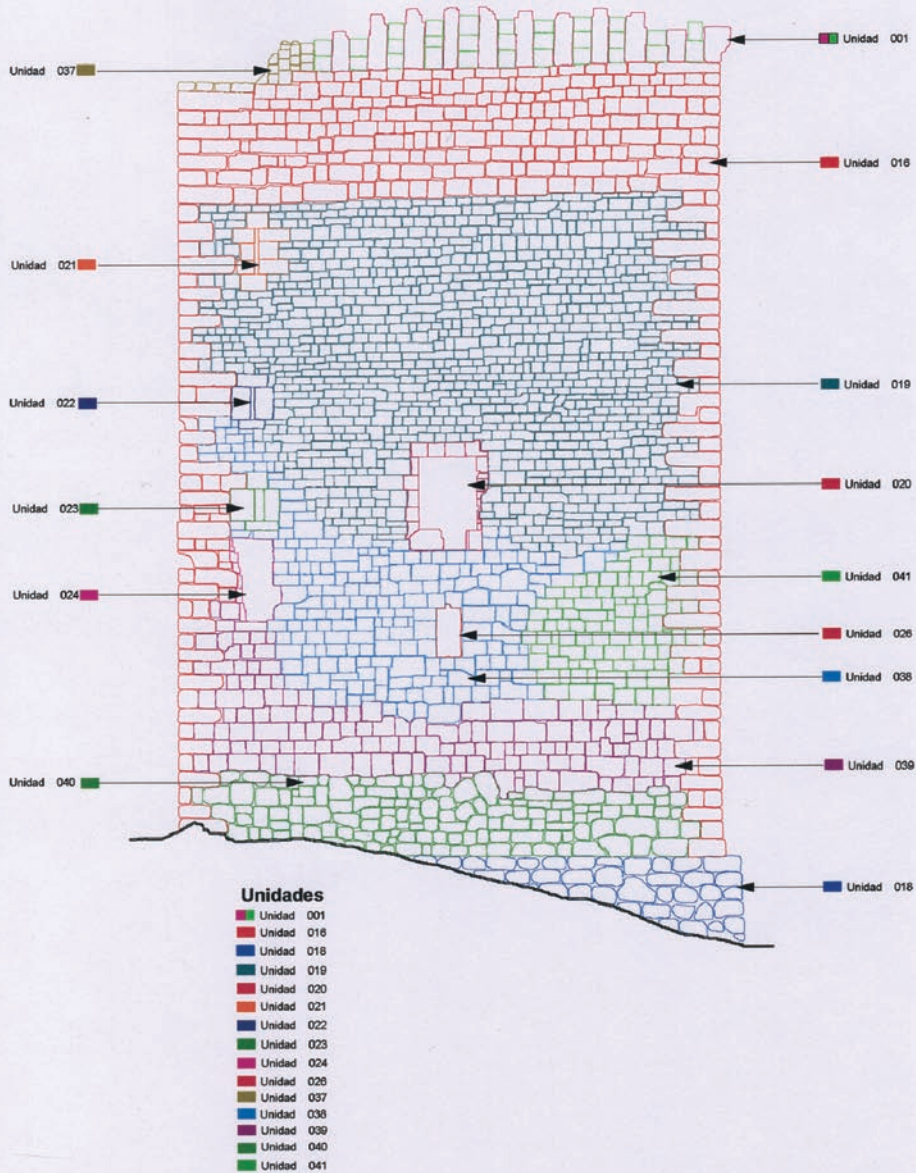 Unidad 001
Unidad 037
Unidad 016
Unidad 021
Unidad 019
Unidad 022
Unidad 020
Unidad 023
Unidad 041
Unidad 024
Unidad 026
Unidad 038
Unidad 039
Unidad 040
Unidad 018
Unidades
Unidad 001
Unidad 016
Unidad 018
Unidad 019
Unidad 020
Unidad 021
Unidad 022
Unidad 023
Unidad 024
Unidad 026
Unidad 037
Unidad 038
Unidad 039
Unidad 040
Unidad 041